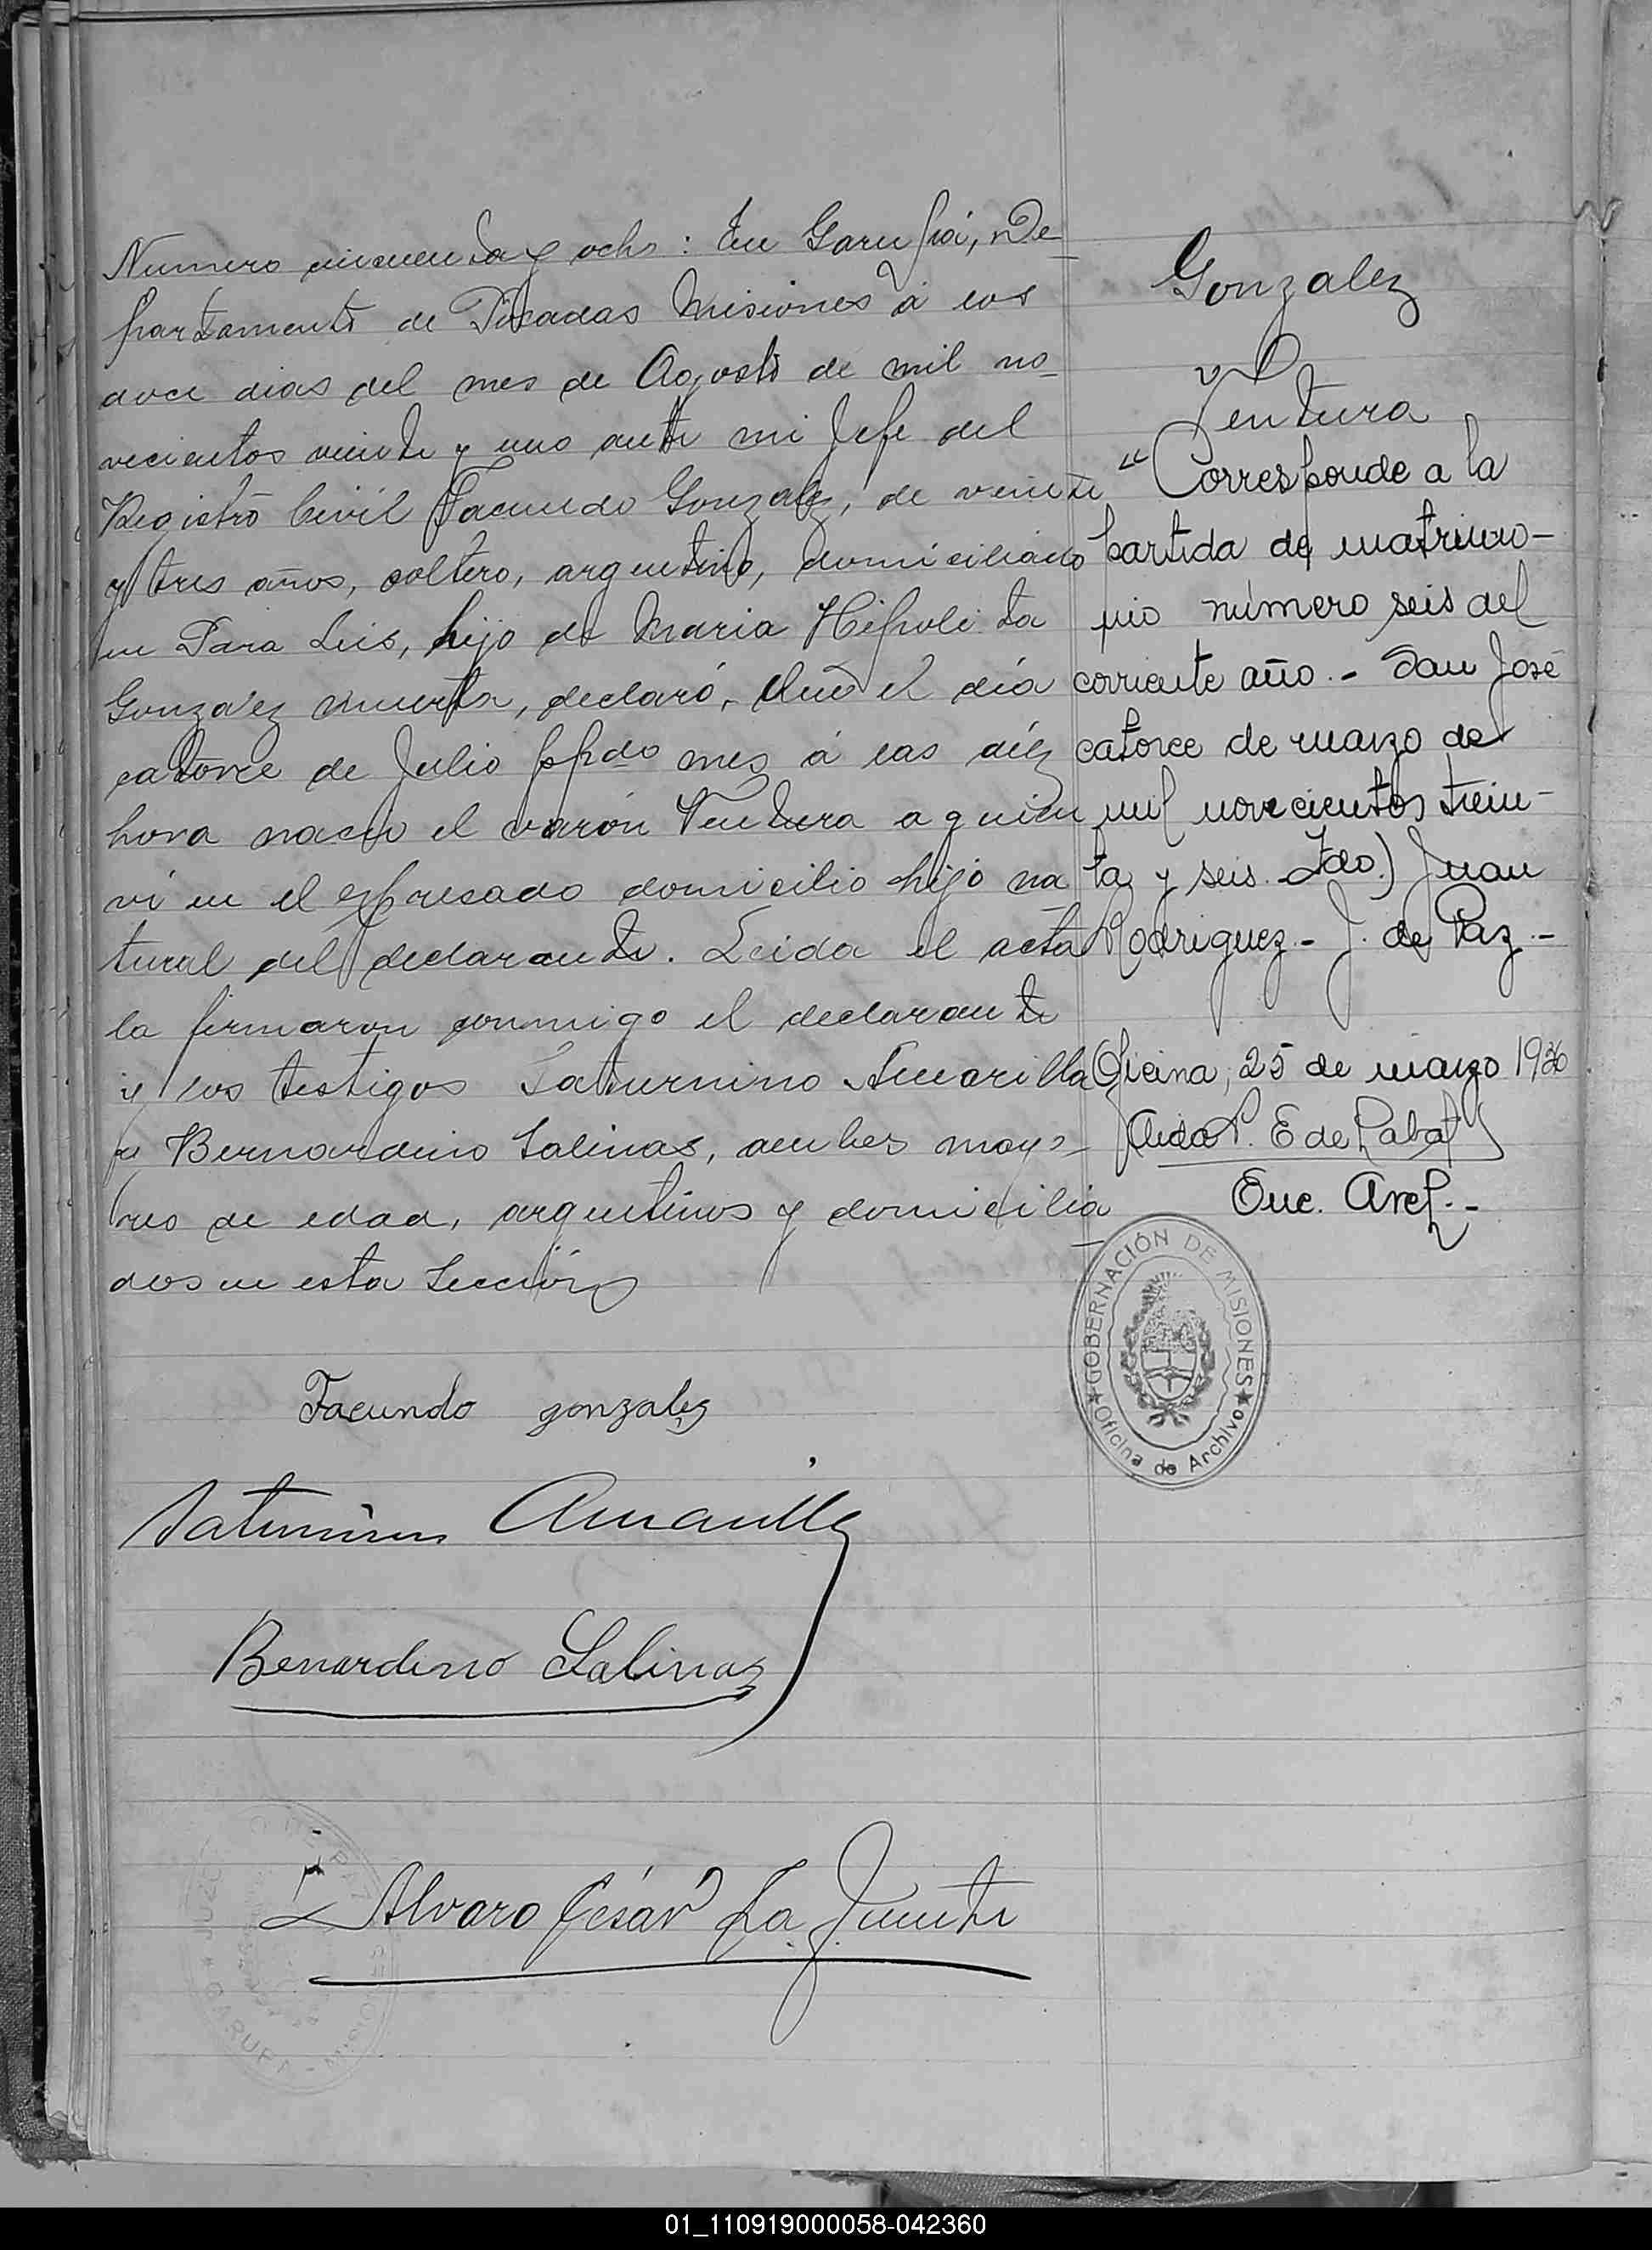 Numero cincuenta y ocho: En Garupá, De-
partamento de Posadas Misiones á los
doce dias del mes de Agosto de mil no-
vecientos veinte y uno ante mi Jefe del
Registro Civíl Facundo Gonzalez, de veinte
y tres años, soltero, argentino, domiciliado
en Para Luis, hijo de Maria Hipolita
Gonzalez muerta, declaró, Que el día
catorce de Julio ppdo mes á las diéz
hora nació el varón Ventura a quien
ví en el expresado domicilio hijo na
tural del declarante. Leida el acta
la firmaron conmigo el declarante
y los testigos Saturnino Amarilla
y Bernardino Salinas, ambos mayo-
res de edad, argentinos y domicilia
dos en esta Sección
Facundo gonzalez
Saturnino Amarilla
Benardino Salinas
Alvaro César La Fuente
Gonzalez
Ventura
"Corresponde a la
partida de matrimo-
nio número seis del
corriente año.- San José
catorce de marzo de
mil novecientos trein-
ta y seis. Fdo.) Juan
Rodriguez.- J. de Paz.-
Oficina, 25 de marzo 1936
Aida P. E de Labat
Enc. Arch.-
GOBERNACIÓN DE MISIONES
Oficina de Archivo
JUZG
GARUPA
01_110919000058-042360